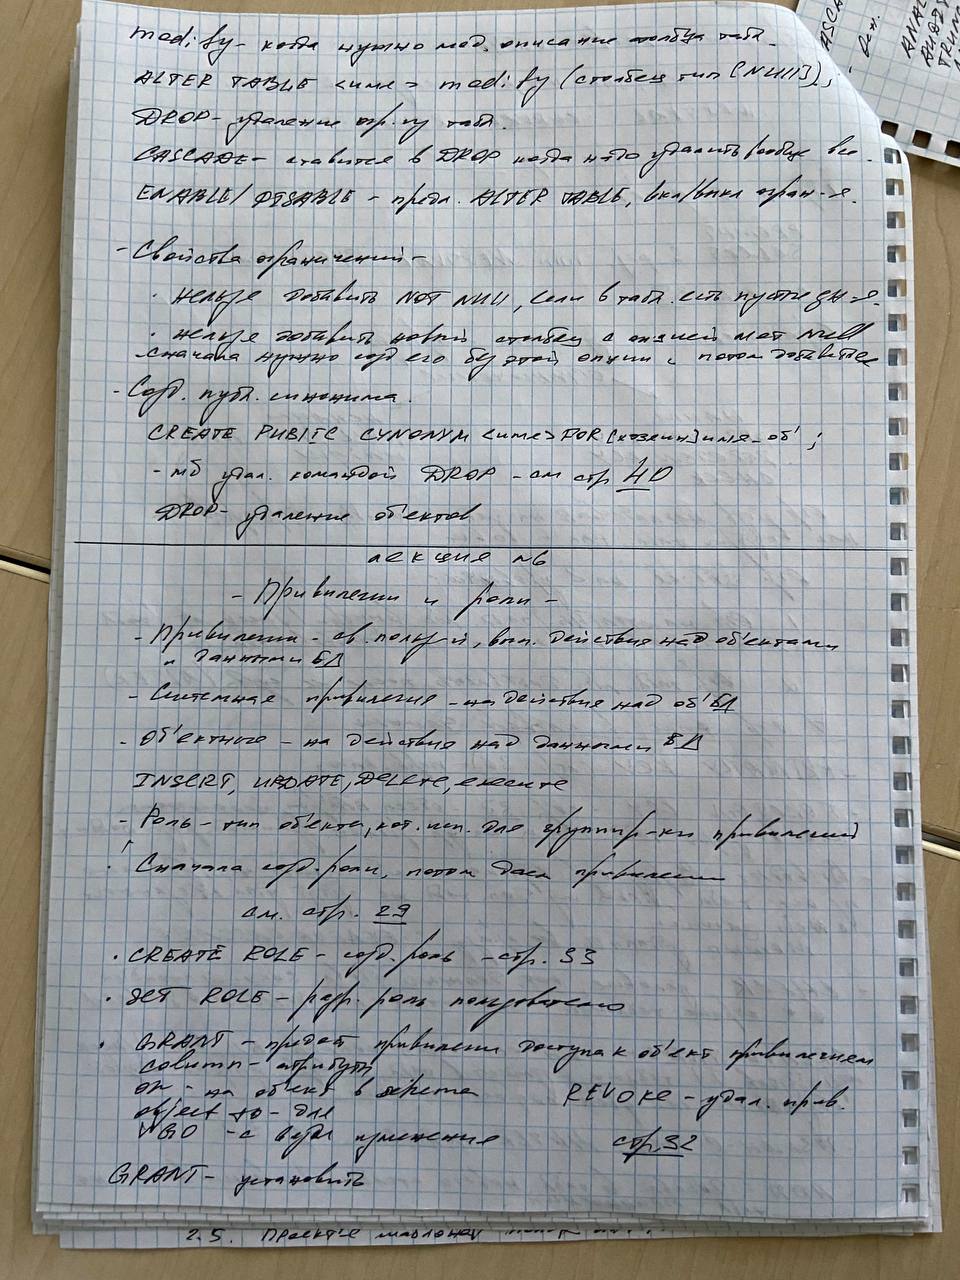 modify - когда нужно мод. описание столбца табл.
ALTER TABLE <имя> modify (столбец тип [NULL]);
DROP - удаление огр. из табл.
CASCADE - ставится в DROP когда надо удалить вообще все.
ENABLE/DISABLE - предл. ALTER TABLE, вкл/выкл огран-я.
- Свойства ограничений -
· нельзя добавить NOT NULL, если в табл. есть пустые зн-я.
· нельзя добавить новый столбец с опцией not null
сначала нужно созд его без этой опции и потом добавить
- Созд. публ. синонима.
CREATE PUBLIC CYNONYM <имя> FOR [хозяин] имя_об';
- мб удал. командой DROP - см стр 40
DROP - удаление об'ектов
лекция №6
- Привилегии и роли -
- Привилегии - св. польз-й, вып. действия над об'ектами
и данными БД
- Системная привилегия - на действия над об' БД
- Об'ектного - на действия над данными БД
INSERT, UPDATE, DELETE, execute
- Роль - тип об'екта, кот. исп. для группир-ки привилегий
· Сначала созд. роли, потом даем привилегии
см. стр. 29
· CREATE ROLE - созд. роль - стр. 33
· SET ROLE - разр. роль пользователю
· GRANT - предост привилегии доступа к об'ект привилегиям
column - атрибуты
on - на об'ект в
REVOKE - удал. прив.
object to - для
WGO - с
стр. 32
GRANT - установить
2.5.
CASCA
ANAL
TRUN